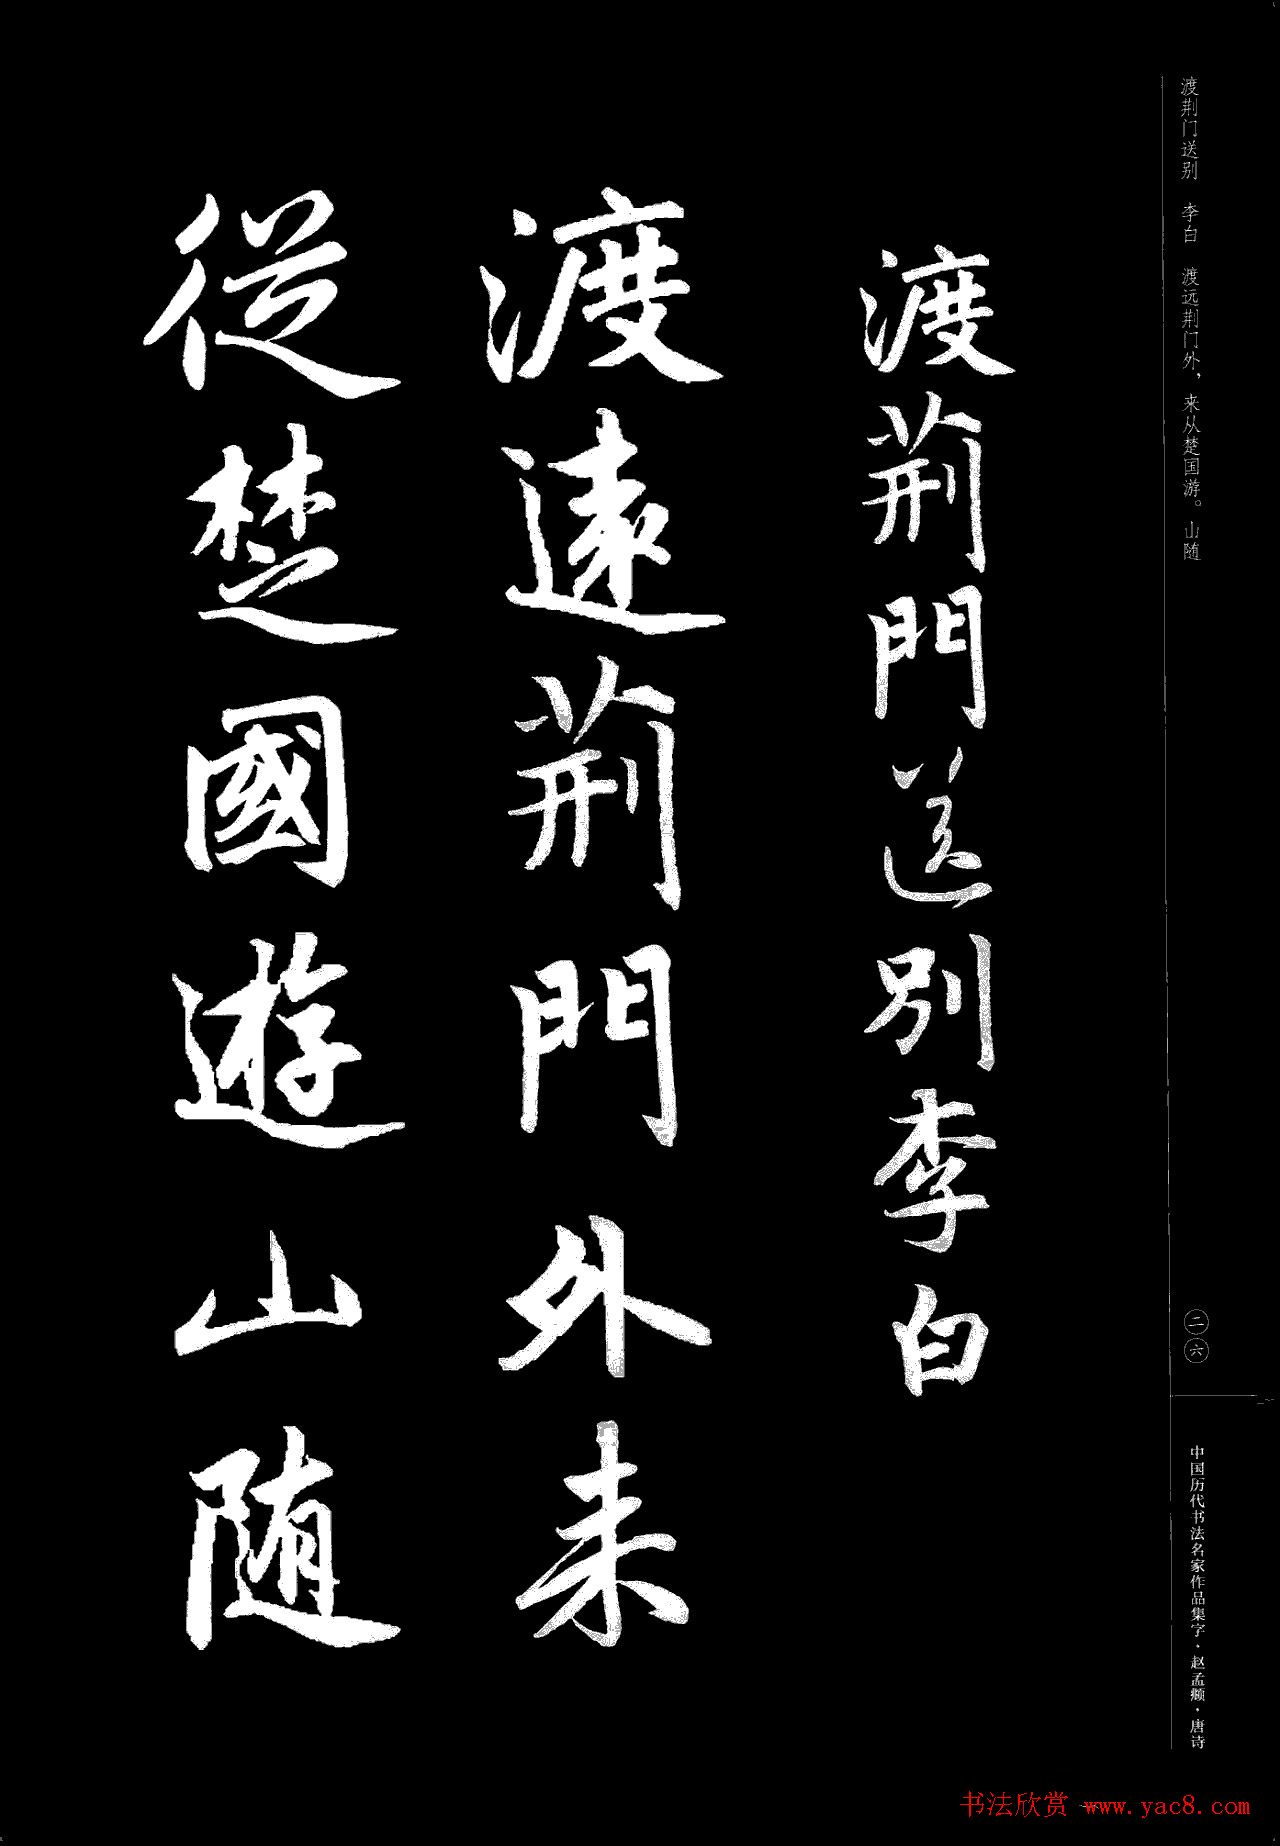 渡荆门送别　李白　渡远荆门外，来从楚国游。山随
渡荊門送別李白
渡遠荊門外来
從楚國遊山随
二六
中国历代书法名家作品集字·赵孟頫·唐诗
书法欣赏 www.yac8.com